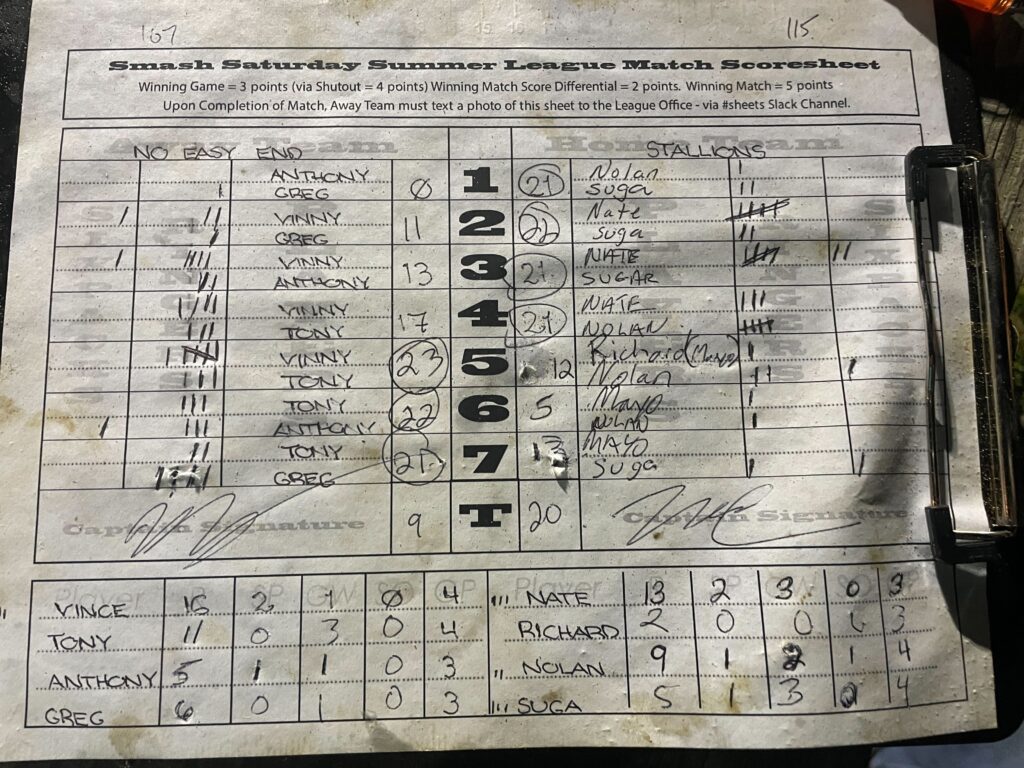 167 115
Smash Saturday Summer League Match Scoresheet
Winning Game = 3 points (via Shutout = 4 points) Winning Match Score Differential = 2 points. Winning Match = 5 points
Upon Completion of Match, Away Team must text a photo of this sheet to the League Office - via #sheets Slack Channel.
Away Team Home Team
NO EASY END STALLIONS
ANTHONY Nolan
GREG 0 1 21 Suga
VINNY Nate
GREG 11 2 22 Suga
VINNY NATE
ANTHONY 13 3 21 SUGAR
VINNY NATE
TONY 17 4 21 NOLAN
VINNY Richard (Mayo)
TONY 23 5 12 Nolan
TONY Mayo
ANTHONY 22 6 5 NOLAN
TONY MAYO
GREG 21 7 Suga
Captain Signature 9 T 20 Captain Signature
Player SP GW SO GP Player SP GW SO GP
VINCE 16 2 1 0 4 NATE 13 2 3 0 3
TONY 11 0 3 0 4 RICHARD 2 0 0 0 3
ANTHONY 5 1 1 0 3 NOLAN 9 1 2 1 4
GREG 6 0 1 0 3 SUGA 5 1 3 0 4